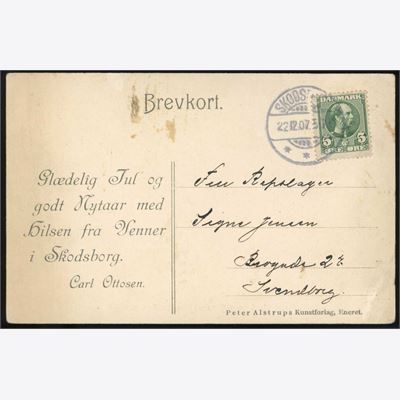 Brevkort.
SKODS
22.12.07.
DANMARK
5 5
ØRE ØRE
Glædelig Jul og
godt Nytaar med
Hilsen fra Venner
i Skodsborg.
Carl Ottosen.
Signe Jensen
Svendborg.
Peter Alstrups Kunstforlag, Eneret.